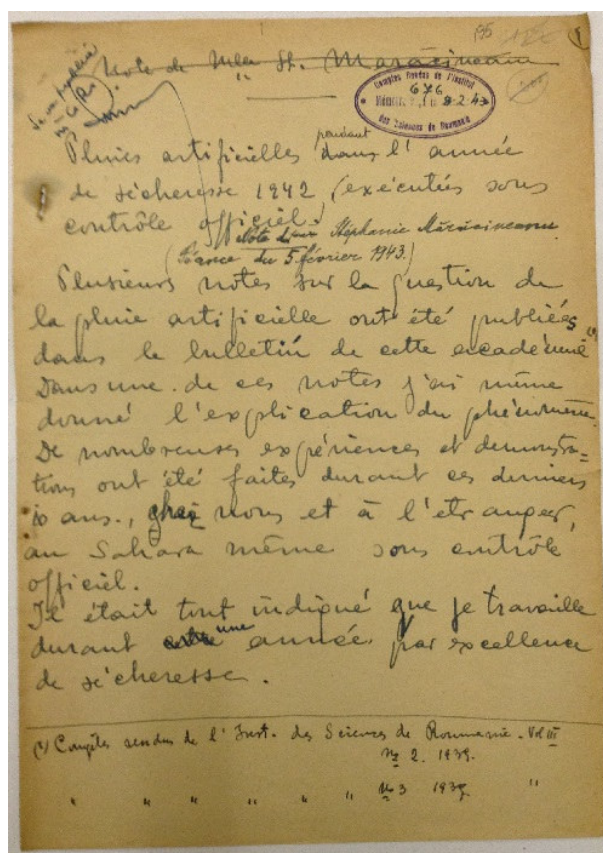 195
1
Note de Mlle St. Maracineanu
Se va publica
în C.R.
Comptes Rendus de l'Institut
676
9-2-43
des Sciences de Roumanie
Pluies artificielles dans pendant l'année
de sécheresse 1942 (exécutées sous
contrôle officiel.)
Note de Stéphanie Mărăcineanu
(Séance du 5 février 1943.)
Plusieurs notes sur la question de
la pluie artificielle ont été publiées
dans le bulletin de cette académie (1)
Dans une de ces notes j'ai même
donné l'explication du phénomène.
De nombreuses expériences et demonstra=
tions ont été faites durant ces derniers
10 ans., chez nous et à l'etranger,
au Sahara même sous contrôle
officiel.
Il était tout indiqué que je travaille
durant cette une année par excellence
de sécheresse.
(1) Comptes rendus de l'Inst. des Sciences de Roumanie. Vol III
No 2. 1939.
" " " " " " No 3 1939 "